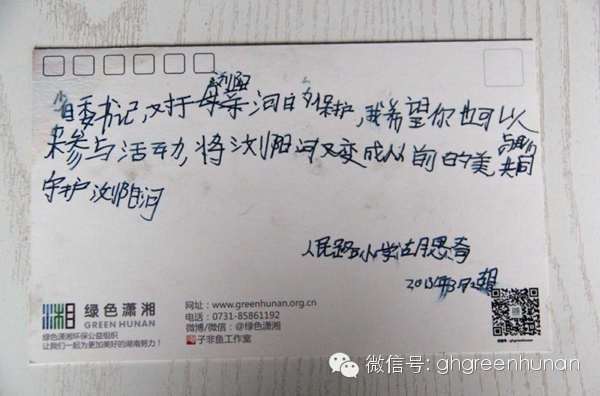 浏阳
省委书记,对于母亲河的保护,我希望你也可以
来参与活动,将浏阳河又变成以前的美,与我们
共同
守护浏阳河
人民路小学胡思奇
湘 绿色潇湘
GREEN HUNAN
绿色潇湘环保公益组织
让我们一起为更加美好的湖南努力!
网址:www.greenhunan.org.cn
电话:0731-85861192
微博/微信:@绿色潇湘
子非鱼工作室
微信号:ghgreenhunan
微信号: ghgreenhunan